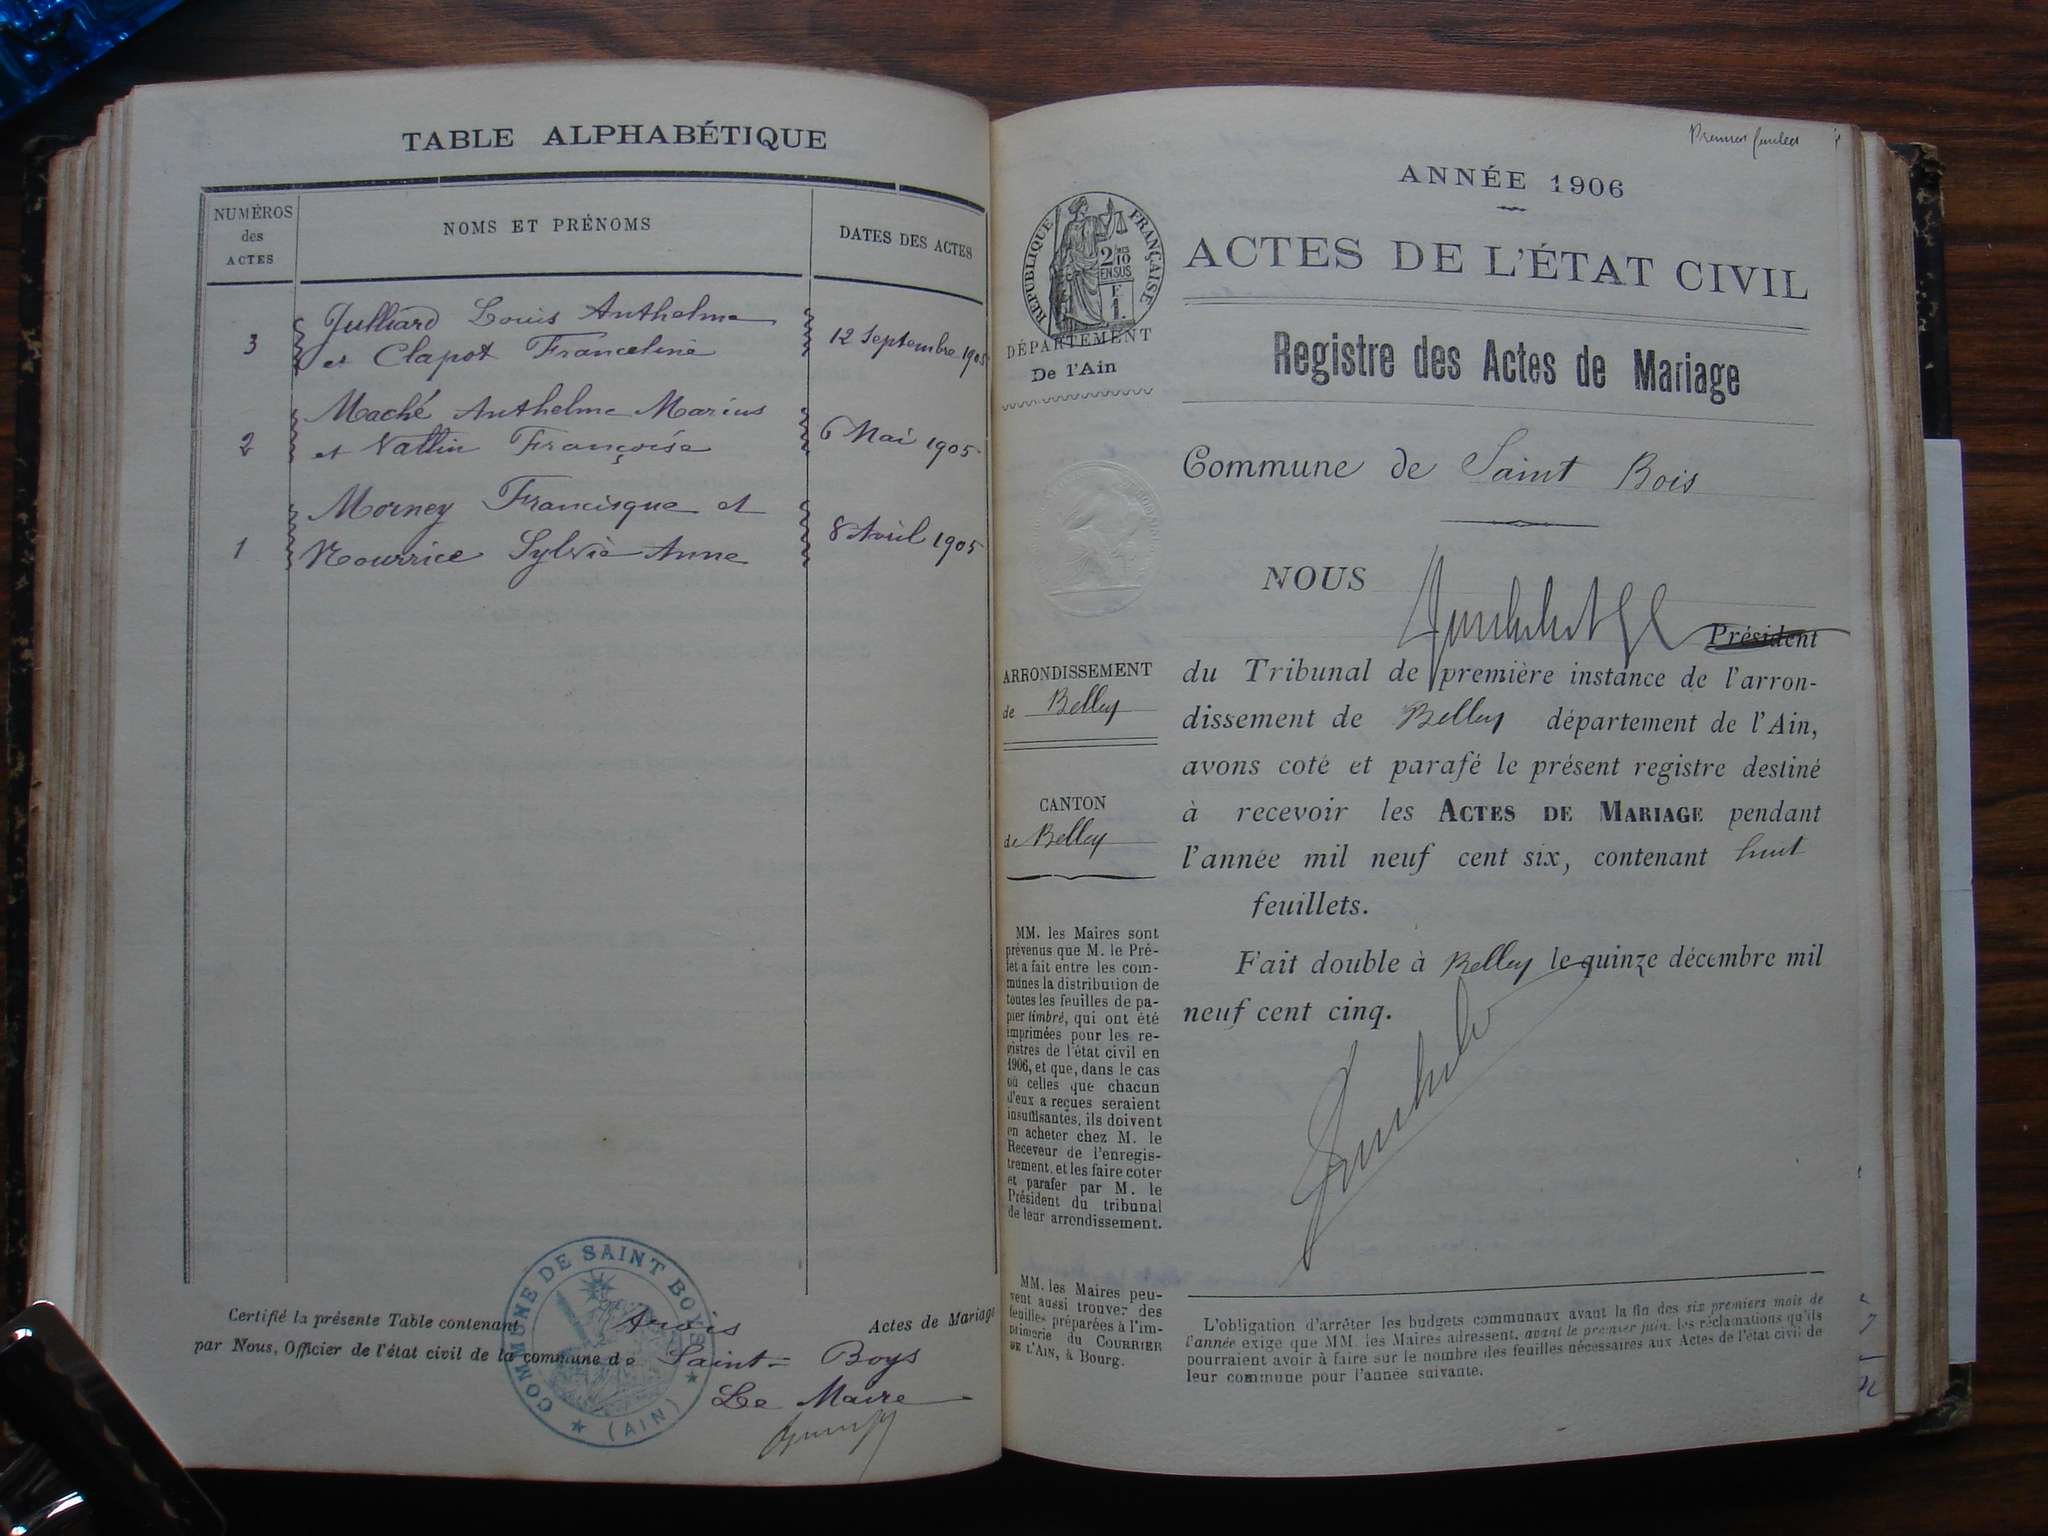 TABLE ALPHABÉTIQUE
NUMÉROS
des
ACTES
NOMS ET PRÉNOMS
DATES DES ACTES
3
Julliard Louis Anthelme
et Clapot Franceline
12 Septembre 1905
2
Maché Anthelme Marius
et Vallin Françoise
6 Mai 1905
1
Morney Francisque et
Nourrice Sylvie Anne
8 Avril 1905
Certifié la présente Table contenant trois Actes de Mariage
par Nous, Officier de l'état civil de la commune de Saint-Boys
Le Maire
COMMUNE DE SAINT BOYS
(AIN)
Premier feuillet
ANNÉE 1906
RÉPUBLIQUE FRANÇAISE
2/10
EN SUS
F
1.
ACTES DE L'ÉTAT CIVIL
DÉPARTEMENT
De l'Ain
Registre des Actes de Mariage
Commune de Saint Bois
NOUS
Président
du Tribunal de première instance de l'arron-
dissement de Belley département de l'Ain,
avons coté et parafé le présent registre destiné
à recevoir les ACTES DE MARIAGE pendant
l'année mil neuf cent six, contenant huit
feuillets.
Fait double à Belley le quinze décembre mil
neuf cent cinq.
ARRONDISSEMENT
de Belley
CANTON
de Belley
MM. les Maires sont
prévenus que M. le Pré-
fet a fait entre les com-
munes la distribution de
toutes les feuilles de pa-
pier timbré, qui ont été
imprimées pour les re-
gistres de l'état civil en
1906, et que, dans le cas
où celles que chacun
d'eux a reçues seraient
insuffisantes, ils doivent
en acheter chez M. le
Receveur de l'enregis-
trement, et les faire coter
et parafer par M. le
Président du tribunal
de leur arrondissement.
MM. les Maires peu-
vent aussi trouver des
feuilles préparées à l'im-
primerie du COURRIER
DE L'AIN, à Bourg.
L'obligation d'arrêter les budgets communaux avant la fin des six premiers mois de
l'année exige que MM. les Maires adressent, avant le premier juin, les réclamations qu'ils
pourraient avoir à faire sur le nombre des feuilles nécessaires aux Actes de l'état civil de
leur commune pour l'année suivante.